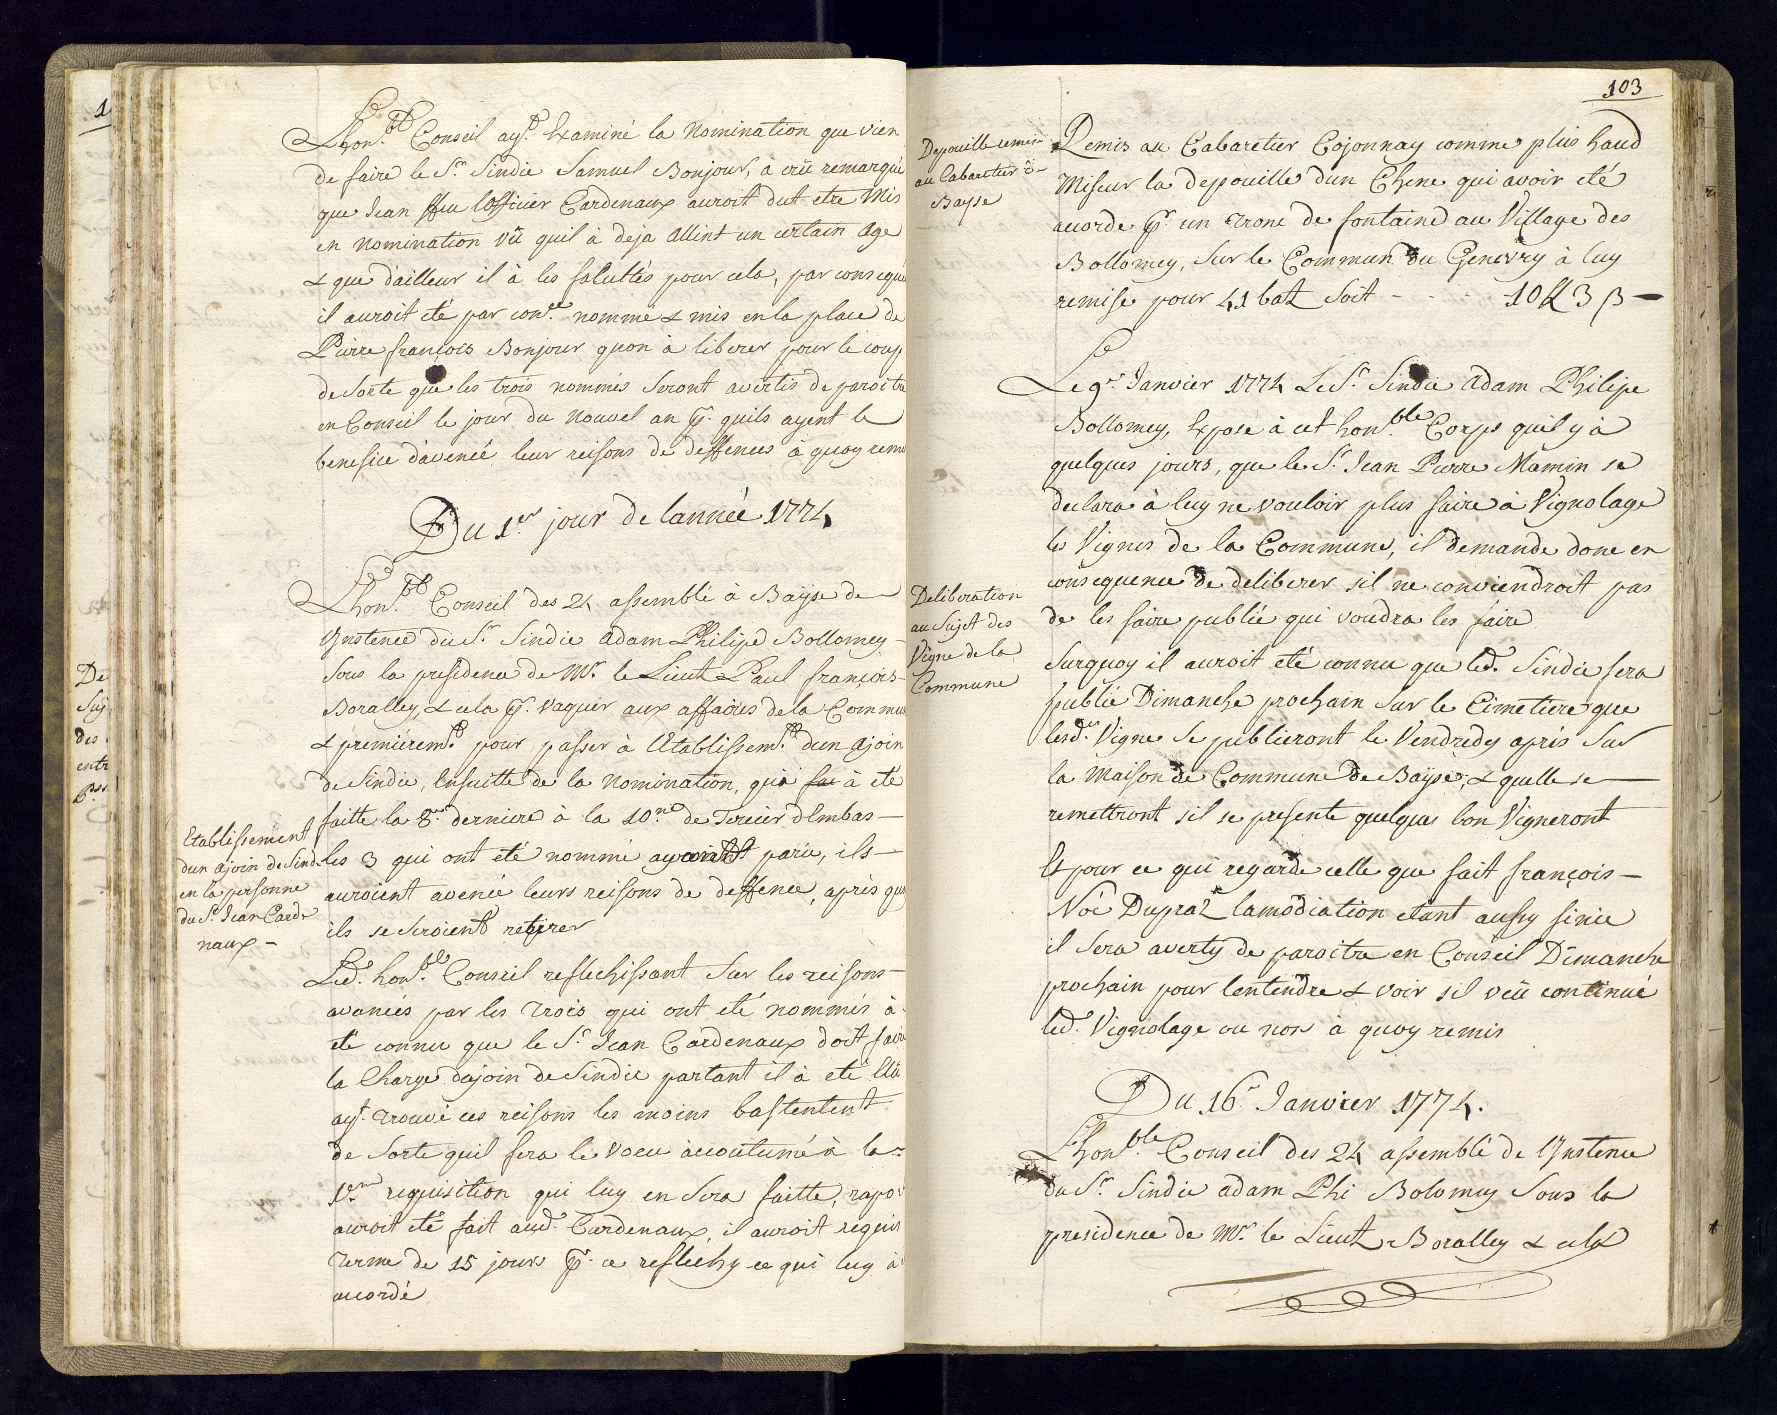 Lhon.ble Conseil ay.t Examiné la Nomination que vien
de faire le S.r Sindic Samuel Bonjour, a crû remarqué
que Jean ffeu lofficier Cardenaux auroit dut etre Mis
en nomination vû quil à deja attint un certain Age
& que d'ailleur il à les faluttés pour cela, par conseque
il auroit eté par con.ce nommé & mis en la place de
Pierre françois Bonjour quon à liberer pour le coup
de Sorte que les trois nommés Seront avertis de paroitre
en Conseil le jour du Nouvel an p.r quils ayent le
benefice d'avencé leur reisons de deffences à quoy remis
Du 1.er jour de lanneé 1774
Lhon.ble Conseil des 24 assemblé à Baÿse de
l'Instence du S.r Sindic Adam Philipe Bollomey
Sous la presidence de Mr. le Lieut Paul françois
Boralley, & cela p.r vaquer aux affaires de la Commun
& premierem.t pour passer à l'Etablissem.t d'un Ajoin
de Sindic, Ensuitte de la Nomination, qui à eté
faitte la 8.re derniere à la 10.me de Tercier d'Embas
les 3 qui ont eté nommé ayants parû, ils
auroient avencé leurs reisons de deffence, après quoy
ils se Seroient retirer
Led. hon.ble Conseil reflechissant Sur les reisons
avancées par les Trois qui ont eté nommés à
eté connu que le S.r Jean Cardenaux doit faire
la Charge dajoin de Sindic partant il à eté Elû
ay.t trouvé ces reisons les moins bastentent
de Sorte quil fera le voeu accoutumé à la
1.re requisition qui luy en Sera faitte, rapor
auroit eté fait aud. Cardenaux, il auroit requis
Terme de 15 jours p.r ce reflechy ce qui luy à
accordé
Etablissement
dun ajoin de Sind
en la personne
du S.r Jean Carde
naux
103
Depouille remis
au Cabaretier de
Bayse
Remis au Cabaretier Cojonnay comme plus haud
Miseur la depouille d'un Chene qui avoir eté
accorde p.r un Tronc de fontaine au Village des
Bollomey, Sur le Commun du Genevry à luy
remise pour 41 batz Soit - - - 10 ƒ 3 β —
Le 9.e Janvier 1774 Le S.r Sindic Adam Philipe
Bollomey, Expose à cet hon.ble Corps quil y à
quelques jours, que le S.r Jean Pierre Mamin se
declara à luy ne vouloir plus faire à Vignolage
les Vignes de la Commune, il demande donc en
consequence de deliberer sil ne conviendroit pas
de les faire publié qui voudra les faire
Deliberation
au Sujet des
Vigne de la
Commune
Surquoy il auroit eté connu que led. Sindic fera
publié Dimanche prochain Sur le Cimetiere que
lesd.es Vigne Se publieront le Vendredy après Sur
la Maison de Commune de Baÿse, & quelle se
remettront sil se presente quelques bon Vigneront
Et pour ce qui regarde celle que fait françois
Noé Dupraz lamodiation etant aussy finie
il Sera averty de paroitre en Conseil Dimanche
prochain pour lentendre & voir sil veü continué
led. Vignolage ou non à quoy remis
Du 16.e Janvier 1774.
Lhon.ble Conseil des 24 assemblé de l'Instence
du S.r Sindic adam Phi Bolomey Sous la
presidence de Mr. le Lieut Boralley & cela